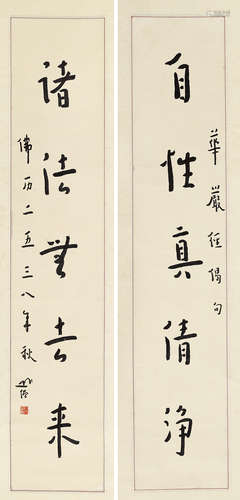 華嚴经偈句
自性真清淨
諸法無去来
佛历二五三八年秋